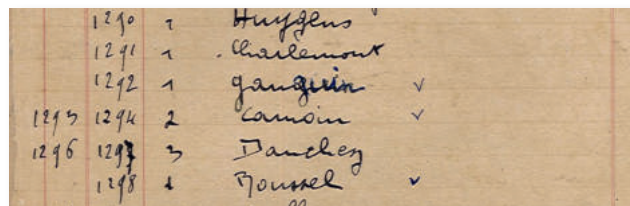 1290 1 Huygens
1291 1 Charlemont
1292 1 gauguin ✓
1293 1294 2 Camoin ✓
1296 1297 3 Dauchez
1298 1 Roussel ✓